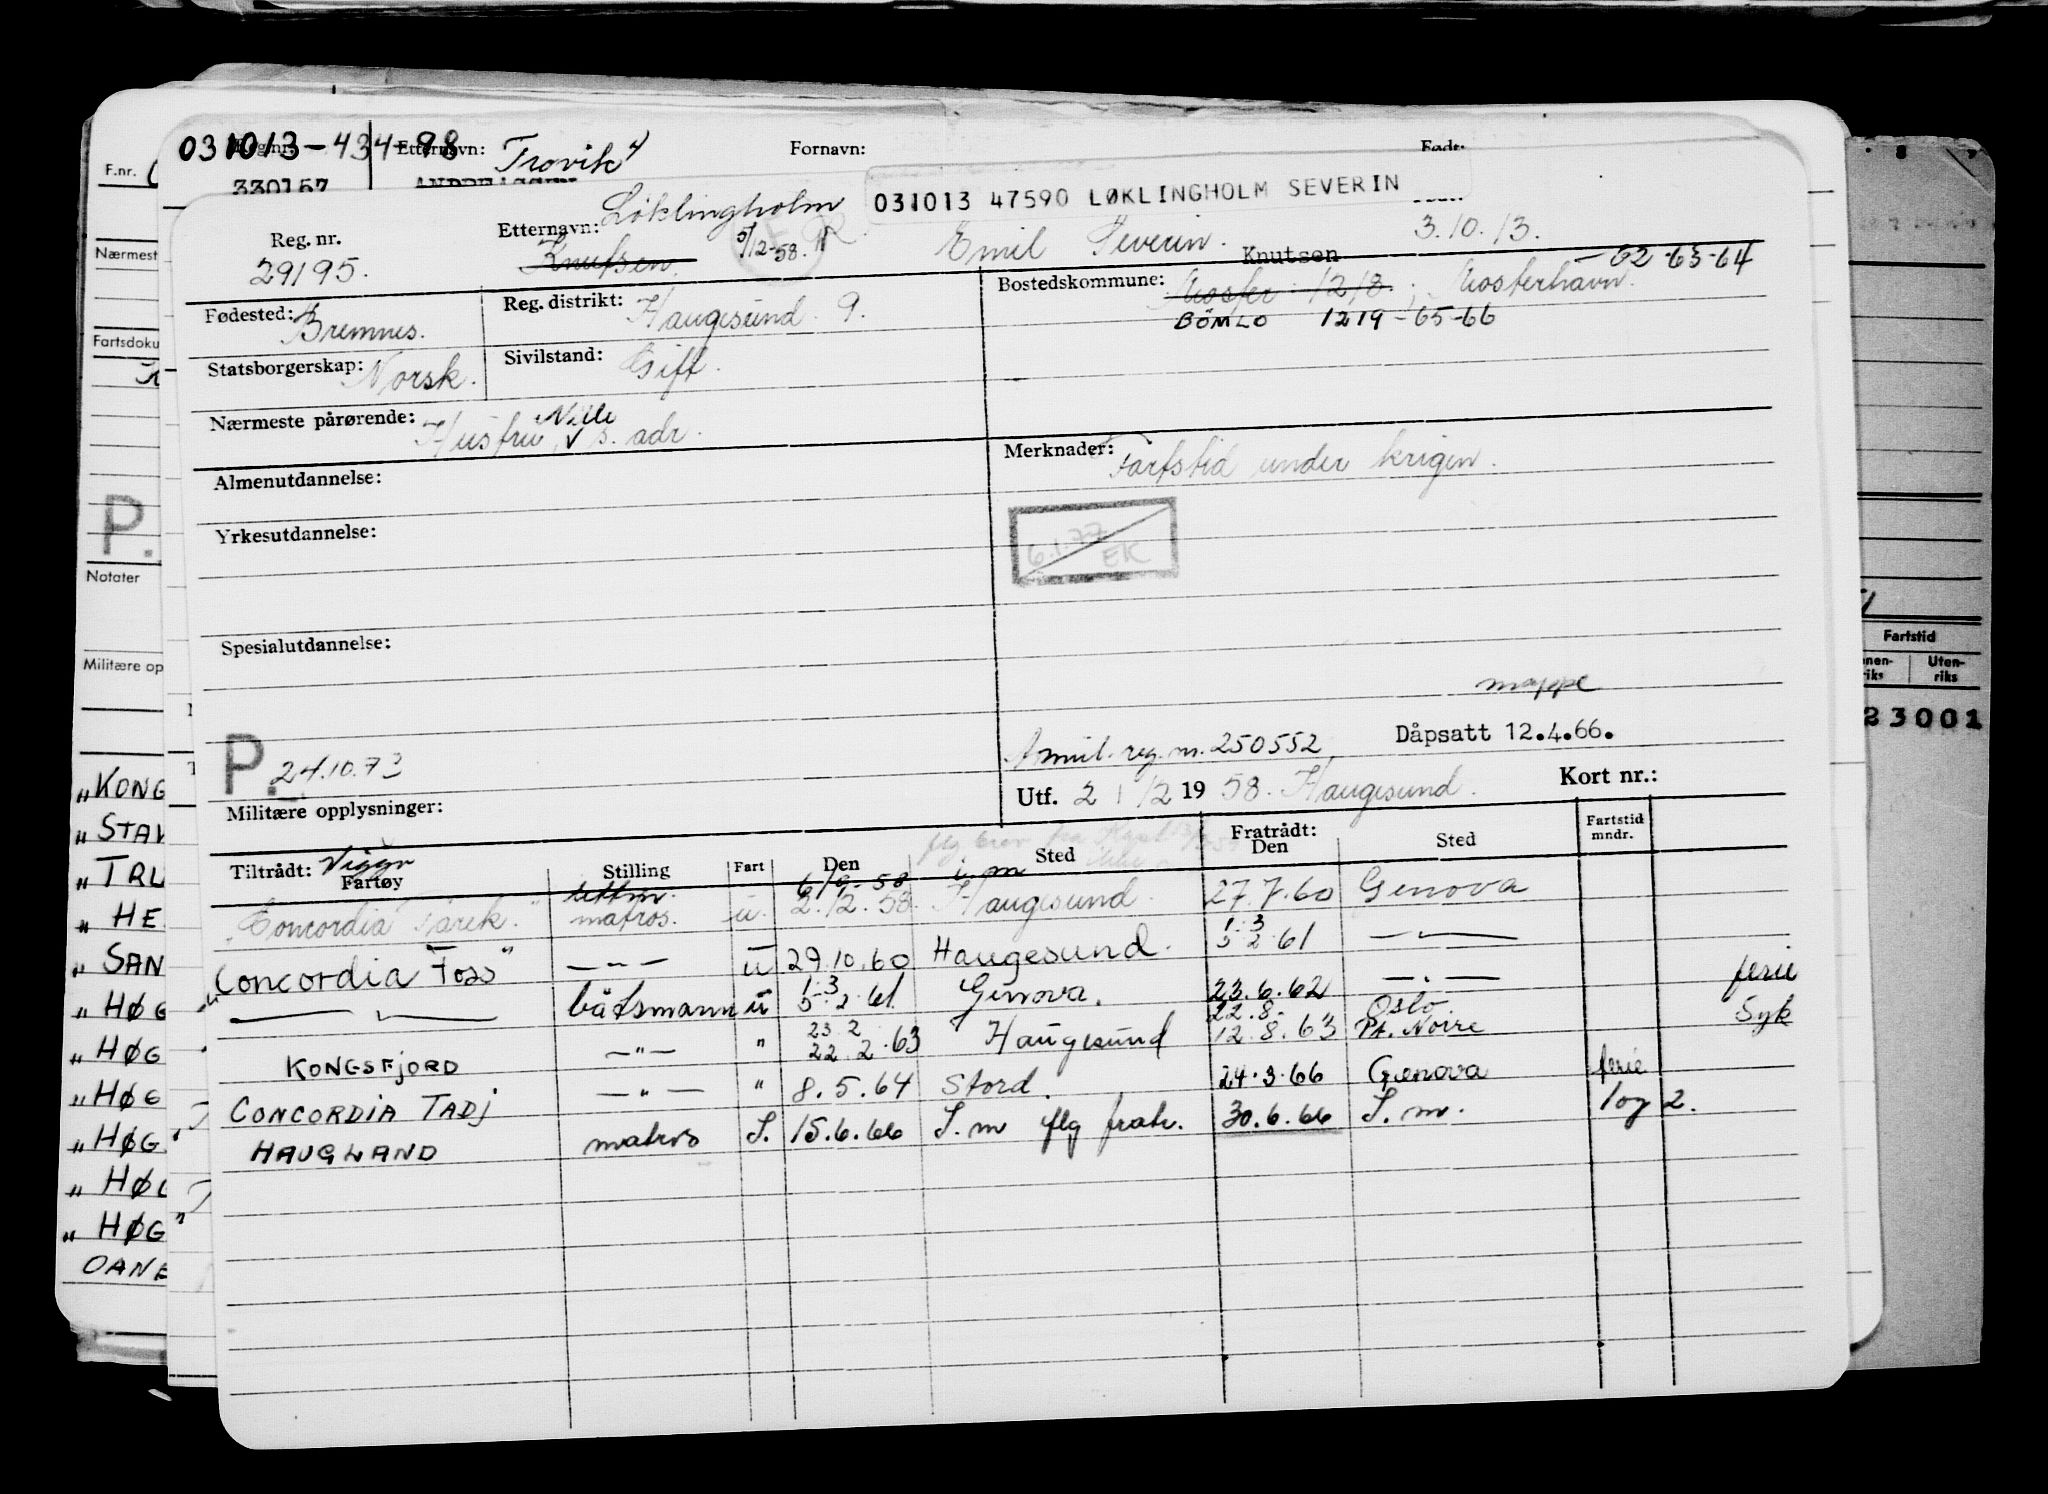 031013-434-98 Etternavn: Trovik Fornavn: Født:
330157
031013 47590 LØKLINGHOLM SEVERIN
Reg. nr. 29195.
Etternavn: Løklingholm
Knutsen 5/12-58.
Emil Severin. 3.10.13.
Knutsen
Fødested: Bremnes.
Reg. distrikt: Haugesund 9.
Bostedskommune: Moster 1218; Mosterhavn. -62-63-64
BÖMLO 1219-65-66
Statsborgerskap: Norsk.
Sivilstand: Gift.
Nærmeste pårørende: Husfru Nilli s. adr.
Almenutdannelse:
Merknader: Fartstid under krigen.
6.1.77 EK
Yrkesutdannelse:
Spesialutdannelse:
mappe
Dåpsatt 12.4.66.
Anmul. reg. nr. 250552
P. 24.10.73
Utf. 2 / 12 19 58. Haugesund. Kort nr.:
Militære opplysninger:
Tiltrådt: Viggo
Fartøy Stilling Fart Den Sted Fratrådt: Den Sted Fartstid mndr.
lettm. 6/9-58 i.m
"Concordia Tarek." matros. u. 2.12.58. Haugesund. 27.7.60 Genova
1.3
"Concordia Foss" —"— u 29.10.60 Haugesund. 5 2.61 —"—
1.3
—"— båtsmann u 5.2.61 Genova. 23.6.62 —"— ferie
23 2 22.8. Oslo
KONGSFJORD —"— " 22.2.63 Haugesund 12.8.63 Pt. Noire Syk
CONCORDIA TADJ —"— " 8.5.64 Stord. 24.3.66 Genova ferie
HAUGLAND matros S. 15.6.66 S.m flg fratr. 30.6.66 S.m. 1 og 2.
F.nr.
Nærmest
Fartsdoku
P.
Notater
Militære op
"KONG
"STAV
"TRU
"HE
"SAN
"HØG
"HØG
"HØG
"HØG
"HØG
"HØG"
DANE
Fartstid
Uten-riks
23001